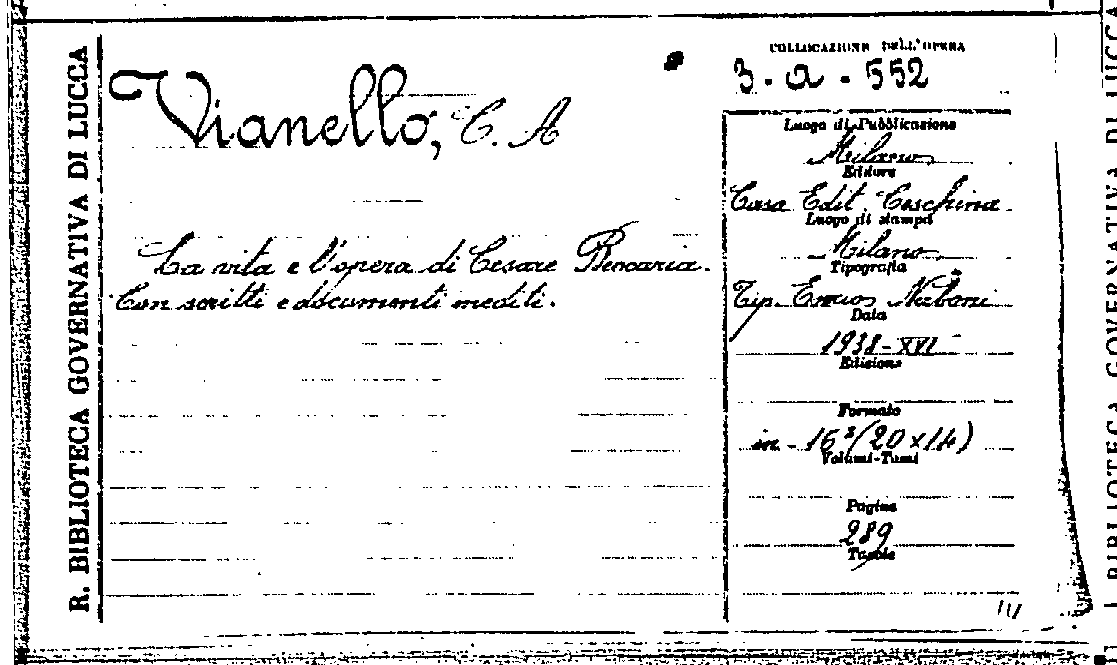 R. BIBLIOTECA GOVERNATIVA DI LUCCA
Vianello, C. A
La vita e l'opera di Cesare Beccaria.
Con scritti e documenti inediti.
COLLOCAZIONE DELL'OPERA
3 - a - 552
Luogo di Pubblicazione
Milano
Editore
Casa Edit. Ceschina
Luogo di stampa
Milano
Tipografia
Tip.
Data
1938 - XVI
Edizione
Formato
in - 16° (20 x 14)
Volumi-Tomi
Pagine
289
Tavole
BIBLIOTECA GOVERNATIVA DI LUCCA